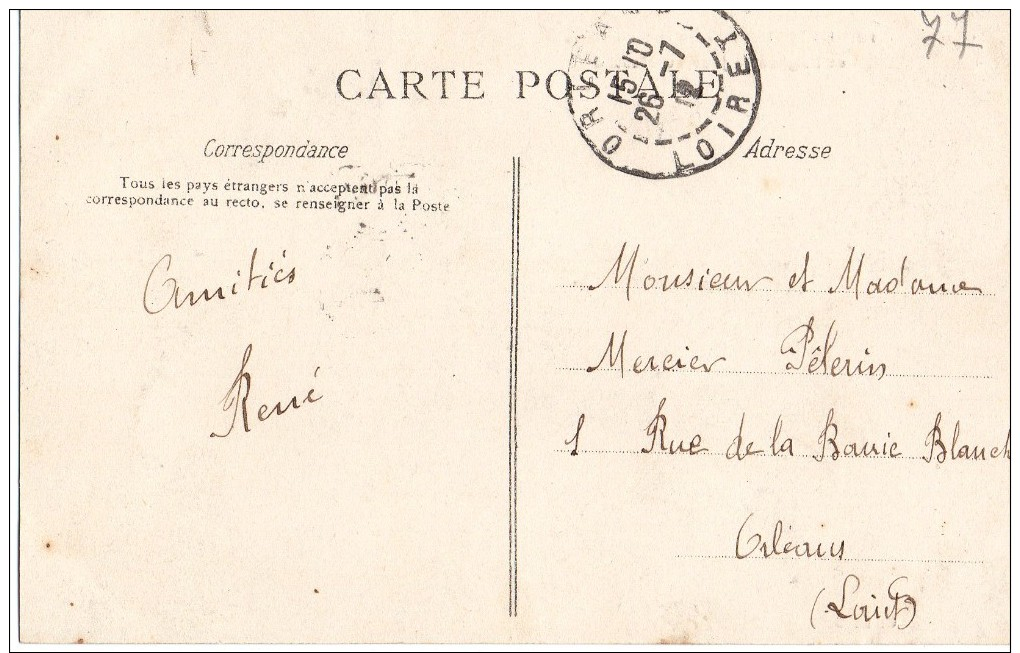 77
CARTE POSTALE
ORLEA
15 10
26 -7
12
LOIRET
Correspondance
Tous les pays étrangers n'acceptent pas la
correspondance au recto, se renseigner à la Poste
Amitiés
René
Adresse
Monsieur et Madame
Mercier Pêlerin
1 Rue de la Blanch
Orléans
(Loiret)